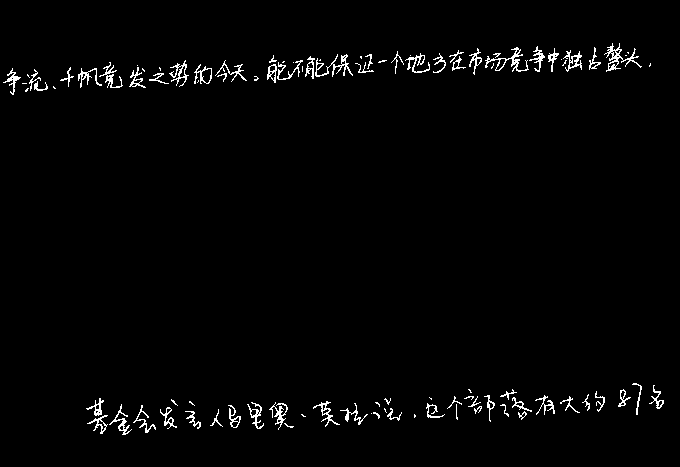 争流、千帆竞发之势的今天。能不能保证一个地方在市场竞争中独占鳌头,
基金会发言人马里奥·莫拉说,这个部落有大约87名